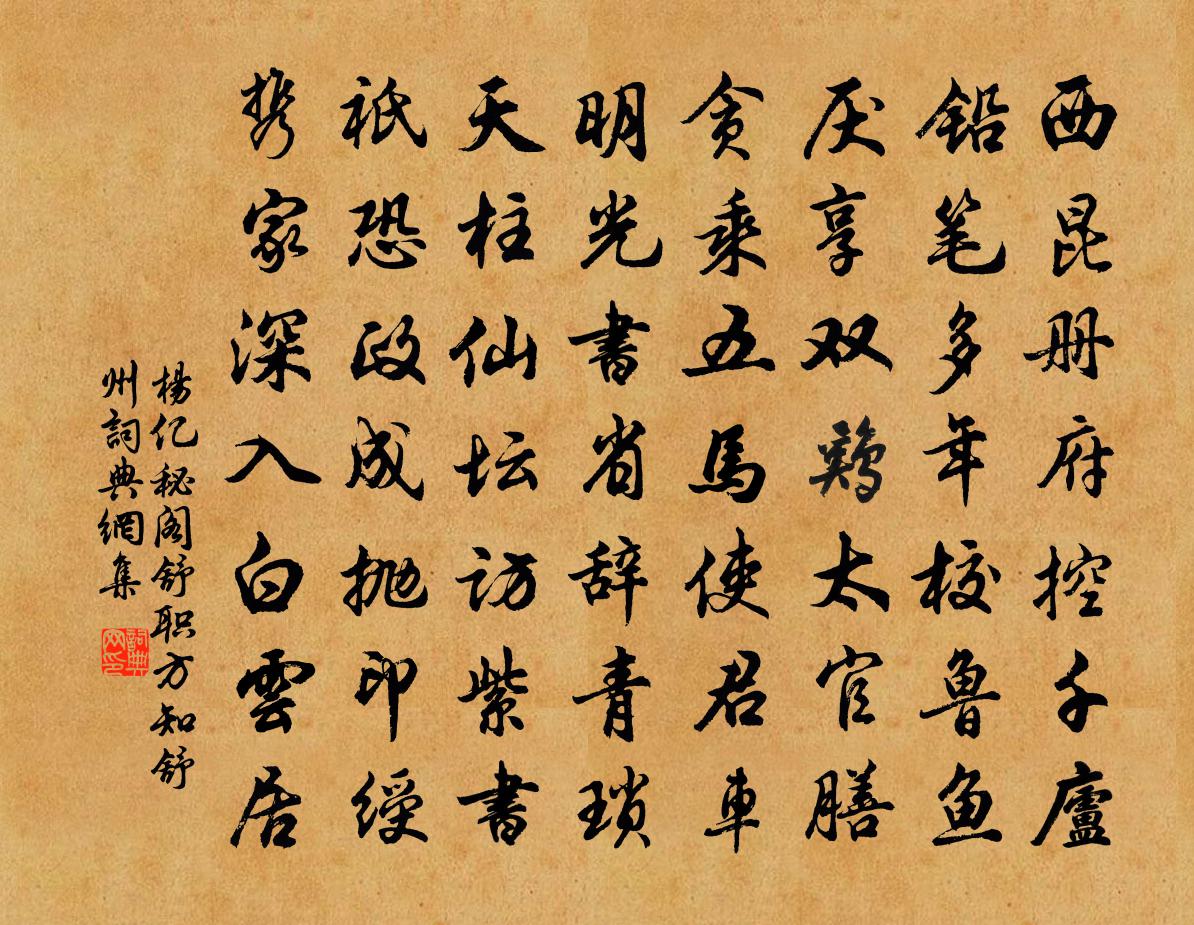 西昆册府控千廬
铅笔多年校鲁鱼
厌享双鷄太官膳
贪乘五馬使君車
明光書省辞青琐
天柱仙坛访紫書
祇恐政成抛印绶
携家深入白雲居
楊亿秘阁舒职方知舒
州詞典網集
詞典
网印